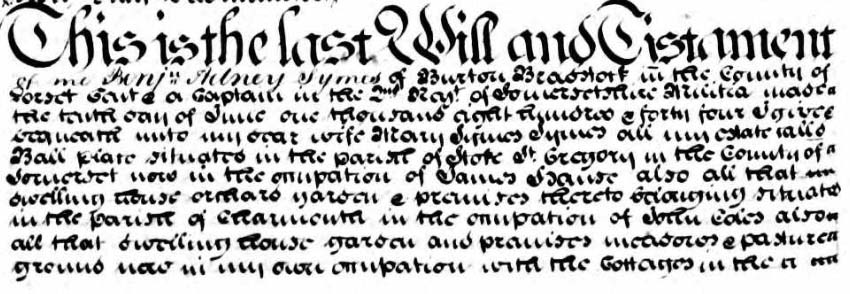 This is the last Will and Testament
of me Benjn Adney Symes of Burton Bradstock in the County of
Dorset Gent & a Captain in the 2nd Regt of Somersetshire Militia made
the tenth day of June one thousand eight hundred & forty four I give
bequeath unto my dear wife Mary Symes Symes all my estate called
Ball place situated in the parish of Stoke St Gregory in the County of
Somerset now in the occupation of James House also all that
dwelling house orchard garden & premises thereto belonging situated
in the parish of Charmouth in the occupation of John Edes also
all that dwelling house garden and premises meadows & pasture
ground now in my own occupation with the Cottages in the